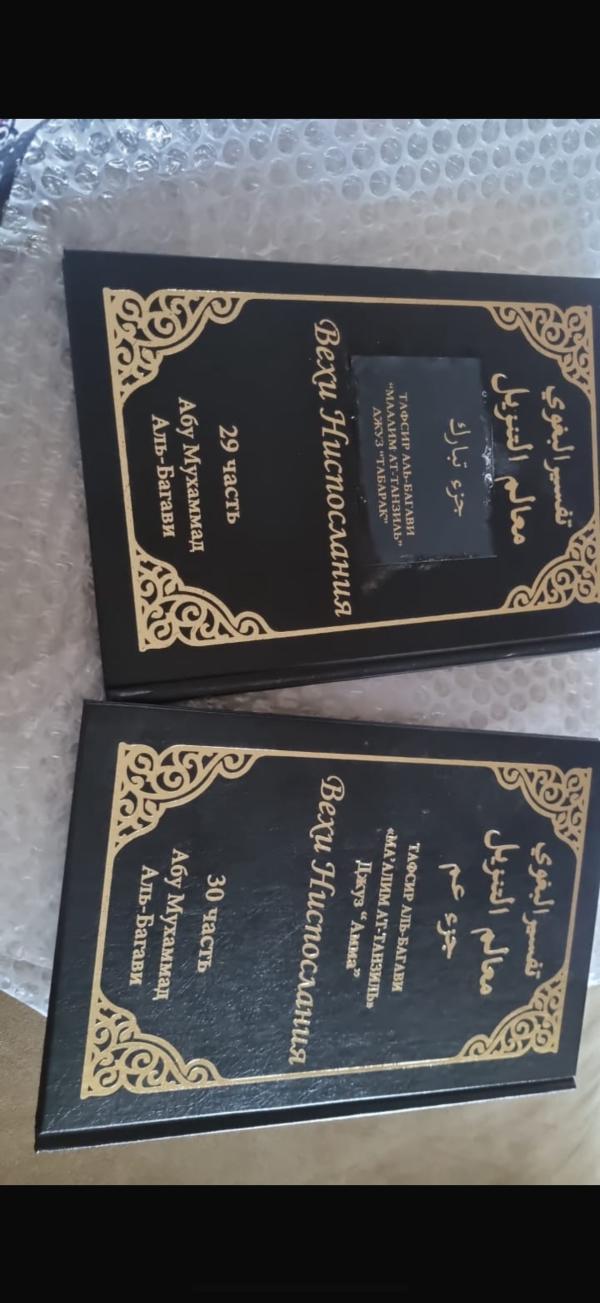 تفسير البغوي
معالم التنزيل
جزء تبارك
ТАФСИР АЛЬ-БАГАВИ
"МААЛИМ АТ-ТАНЗИЛЬ"
ДЖУЗ "ТАБАРАК"
Вехи Ниспослания
29 часть
Абу Мухаммад
Аль-Багави
تفسير البغوي
معالم التنزيل
جزء عم
ТАФСИР АЛЬ-БАГАВИ
«МА'АЛИМ АТ-ТАНЗИЛЬ»
Джуз "Амма"
Вехи Ниспослания
30 часть
Абу Мухаммад
Аль-Багави